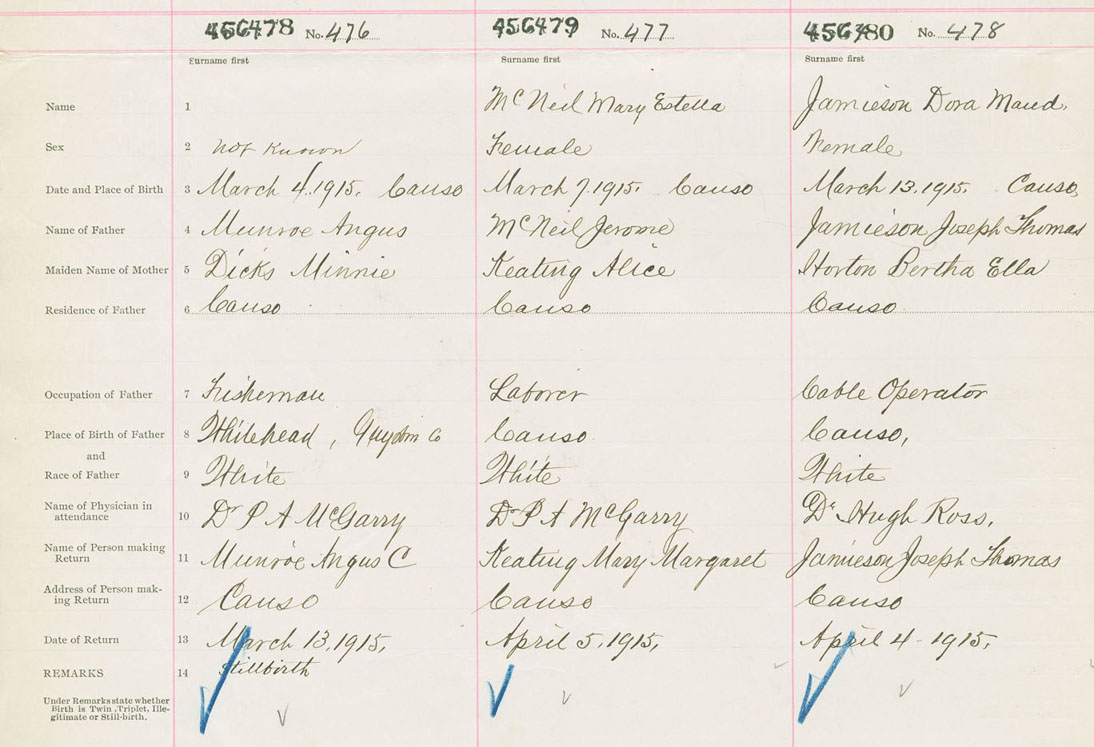 456478 No. 476 456479 No. 477 456480 No. 478
Surname first Surname first Surname first
Name 1 McNeil Mary Estella Jamieson Dora Maud.
Sex 2 not Known Female Female
Date and Place of Birth 3 March 4, 1915. Canso March 7, 1915. Canso March 13, 1915. Canso,
Name of Father 4 Munroe Angus McNeil Jerome Jamieson Joseph Thomas
Maiden Name of Mother 5 Dicks Minnie Keating Alice Horton Bertha Ella
Residence of Father 6 Canso Canso Canso
Occupation of Father 7 Fisherman Laborer Cable Operator
Place of Birth of Father 8 Whitehead, Guysboro Co Canso. Canso,
and
Race of Father 9 White White White
Name of Physician in
attendance 10 Dr P A McGarry Dr P A McGarry Dr Hugh Ross.
Name of Person making
Return 11 Munroe Angus C Keating Mary Margaret Jamieson Joseph Thomas
Address of Person mak-
ing Return 12 Canso Canso Canso
Date of Return 13 March 13, 1915, April 5, 1915, April 4 - 1915,
REMARKS 14 Stillbirth
Under Remarks state whether
Birth is Twin, Triplet, Ille-
gitimate or Still-birth.